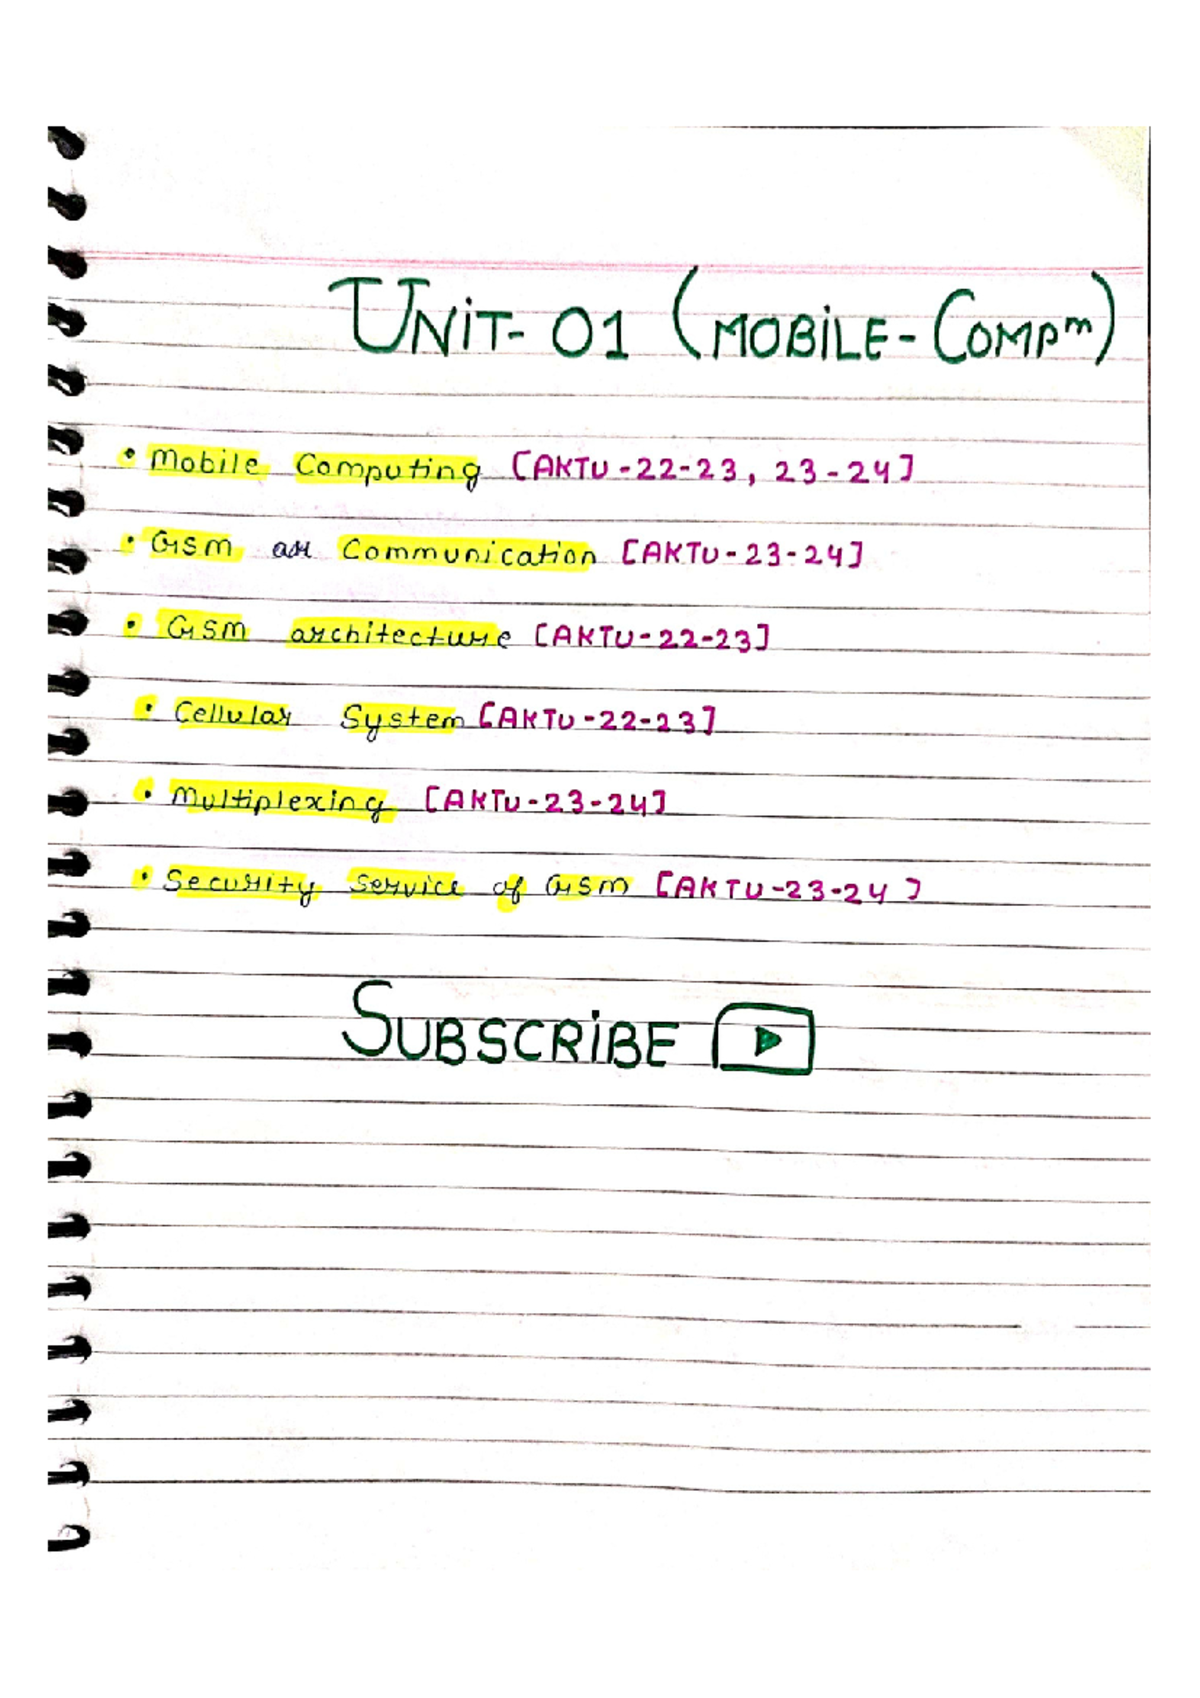 UNiT- 01 (MOBiLE- COMPᵐ)
• Mobile Computing [AKTU-22-23, 23-24]
• GSM as Communication [AKTU-23-24]
• GSM architecture [AKTU-22-23]
• Cellular System [AKTU-22-23]
• Multiplexing [AKTU-23-24]
• Security Service of GSM [AKTU-23-24]
SUBSCRiBE